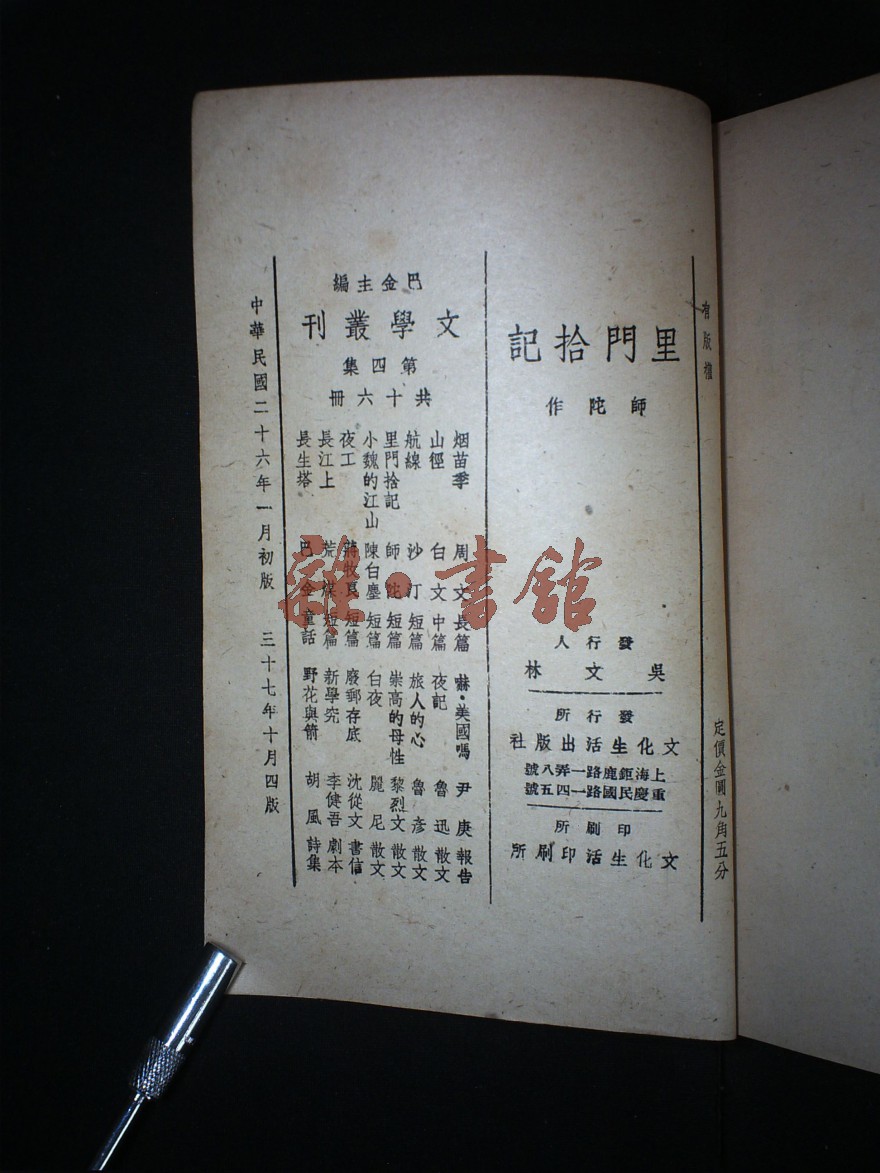 有版權
定價金圓九角五分
里門拾記
師陀作
發行人
吳文林
發行所
文化生活出版社
上海鉅鹿路一弄八號
重慶民國路一四五號
印刷所
文化生活印刷所
巴金主編
文學叢刊
第四集
共十六冊
烟苗季 周文 長篇
山徑 白文 中篇
航線 沙汀 短篇
里門拾記 師陀 短篇
小魏的江山 陳白塵 短篇
夜工 蔣牧良 短篇
長江上 荒煤 短篇
長生塔 巴金 童話
嚇·美國嗎 尹庚 報告
夜記 魯迅 散文
旅人的心 魯彥 散文
崇高的母性 黎烈文 散文
白夜 麗尼 散文
廢郵存底 沈從文 書信
新學究 李健吾 劇本
野花與箭 胡風 詩集
中華民國二十六年一月初版 三十七年十月四版
雜·書館